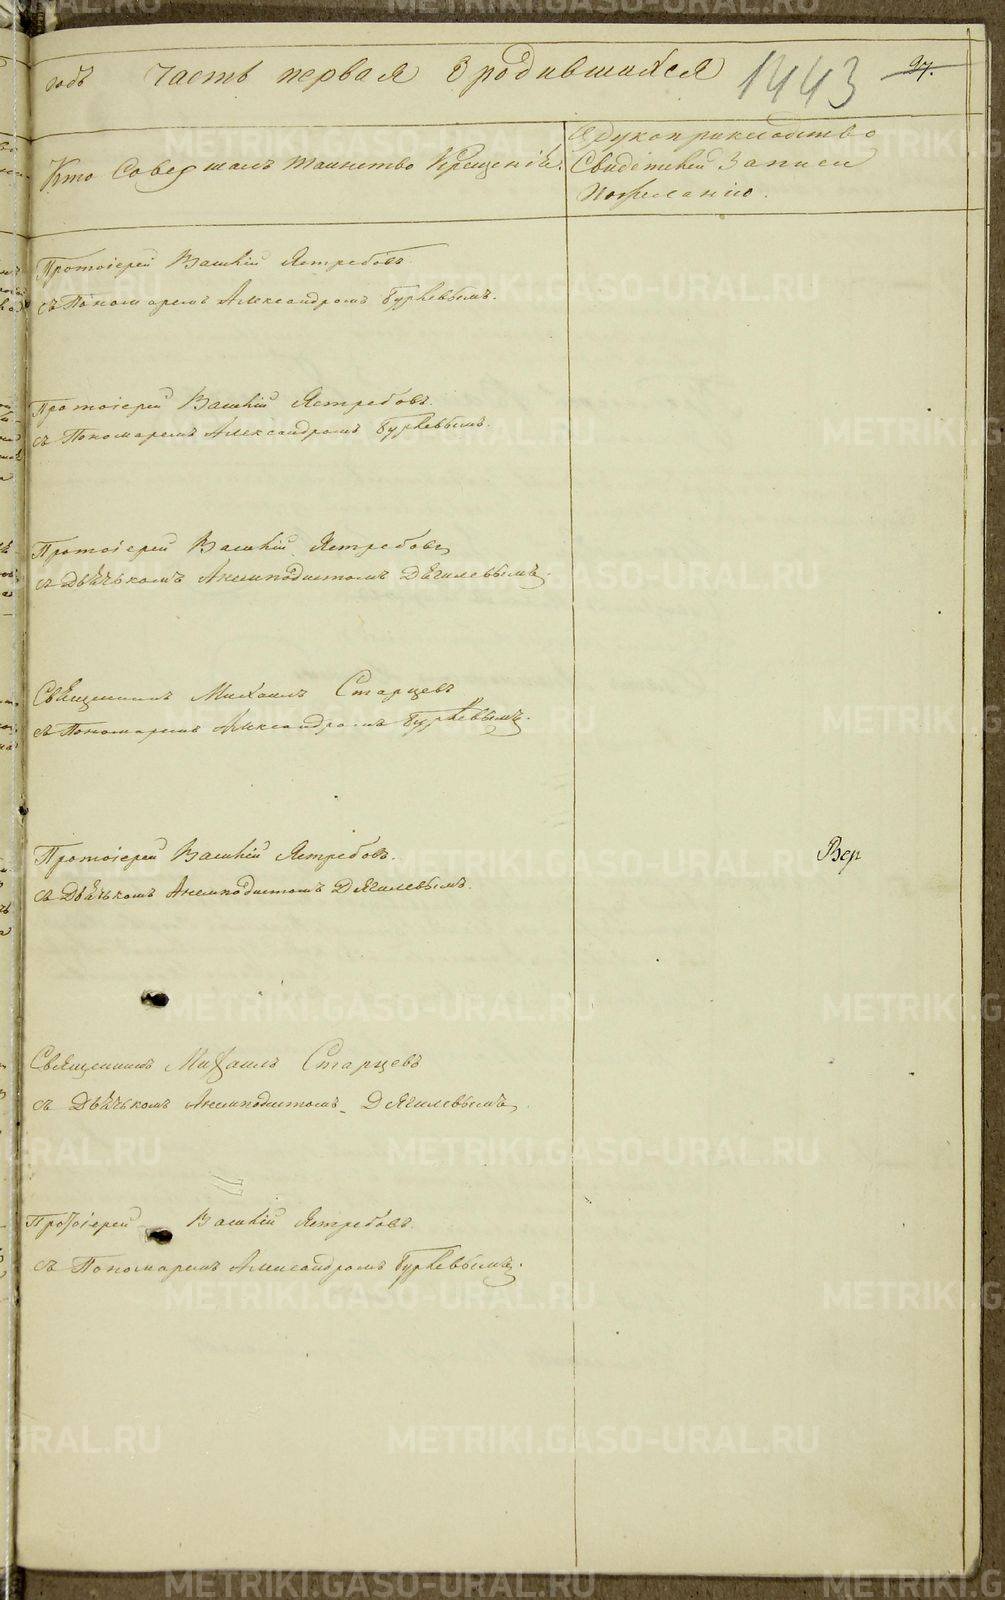 годъ Часть первая о родившихся 1443 97.
Кто Совершалъ таинство Крещенія.
Рукоприкладство
Свидѣтелей Записи
по желанію.
Протоіерей Василій Ястребовъ
съ Пономаремъ Александромъ Гурьевымъ.
Протоіерей Василій Ястребовъ.
съ Пономаремъ Александромъ Гурьевымъ.
Протоіерей Василій Ястребовъ
съ Дьячькомъ Анемподистомъ Дягилевымъ.
Священникъ Михаилъ Старцевъ
съ Пономаремъ Александромъ Гурьевымъ.
Протоіерей Василій Ястребовъ.
съ Дьячькомъ Анемподистомъ Дягилевымъ.
Вер
Священникъ Михаилъ Старцевъ
съ Дьячькомъ Анемподистомъ Дягилевымъ
Протоіерей Василій Ястребовъ.
съ Пономаремъ Александромъ Гурьевымъ.
METRIKI.GASO-URAL.RU